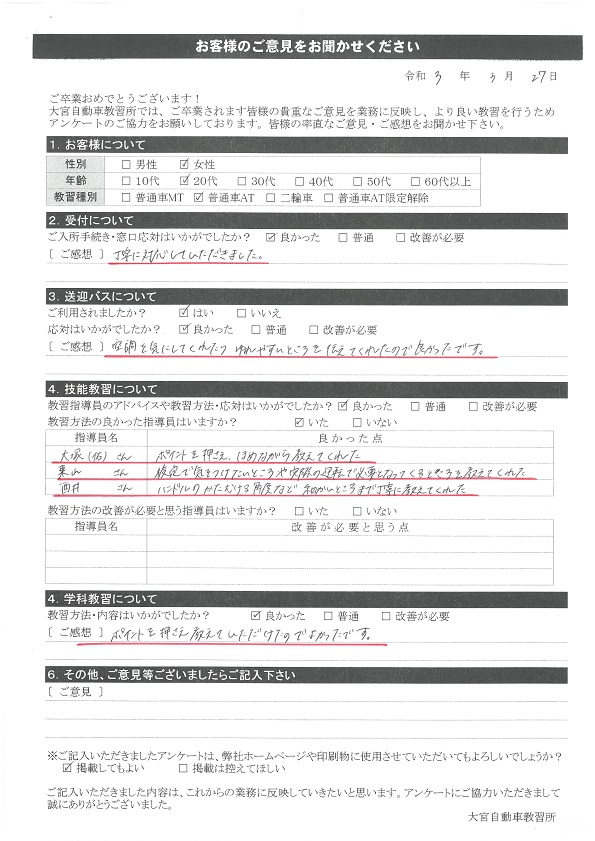 お客様のご意見をお聞かせください
令和 3 年 3 月 27 日
ご卒業おめでとうございます！
大宮自動車教習所では、ご卒業されます皆様の貴重なご意見を業務に反映し、より良い教習を行うため
アンケートのご協力をお願いしております。皆様の率直なご意見・ご感想をお聞かせ下さい。
1. お客様について
性別 □ 男性 ☑ 女性
年齢 □ 10代 ☑ 20代 □ 30代 □ 40代 □ 50代 □ 60代以上
教習種別 □ 普通車MT ☑ 普通車AT □ 二輪車 □ 普通車AT限定解除
2. 受付について
ご入所手続き・窓口応対はいかがでしたか？ ☑ 良かった □ 普通 □ 改善が必要
［ ご感想 ］ 丁寧に対応していただきました。
3. 送迎バスについて
ご利用されましたか？ ☑ はい □ いいえ
応対はいかがでしたか？ ☑ 良かった □ 普通 □ 改善が必要
［ ご感想 ］ 空調を気にしてくれたり ゆれやすいところを伝えてくれたので良かったです。
4. 技能教習について
教習指導員のアドバイスや教習方法・応対はいかがでしたか？ ☑ 良かった □ 普通 □ 改善が必要
教習方法の良かった指導員はいますか？ ☑ いた □ いない
指導員名 良かった点
大塚(佑) さん ポイントを押さえ、ほめながら教えてくれた
栗山 さん 検定で気をつけたいところや実際の運転で必要となってくるところを教えてくれた
酒井 さん ハンドルのかたむける角度など 細かいところまで丁寧に教えてくれた
教習方法の改善が必要と思う指導員はいますか？ □ いた □ いない
指導員名 改善が必要と思う点
4. 学科教習について
教習方法・内容はいかがでしたか？ ☑ 良かった □ 普通 □ 改善が必要
［ ご感想 ］ ポイントを押さえ教えていただけたのでよかったです。
6. その他、ご意見等ございましたらご記入下さい
［ ご意見 ］
※ご記入いただきましたアンケートは、弊社ホームページや印刷物に使用させていただいてもよろしいでしょうか？
☑ 掲載してもよい □ 掲載は控えてほしい
ご記入いただきました内容は、これからの業務に反映していきたいと思います。アンケートにご協力いただきまして
誠にありがとうございました。
大宮自動車教習所